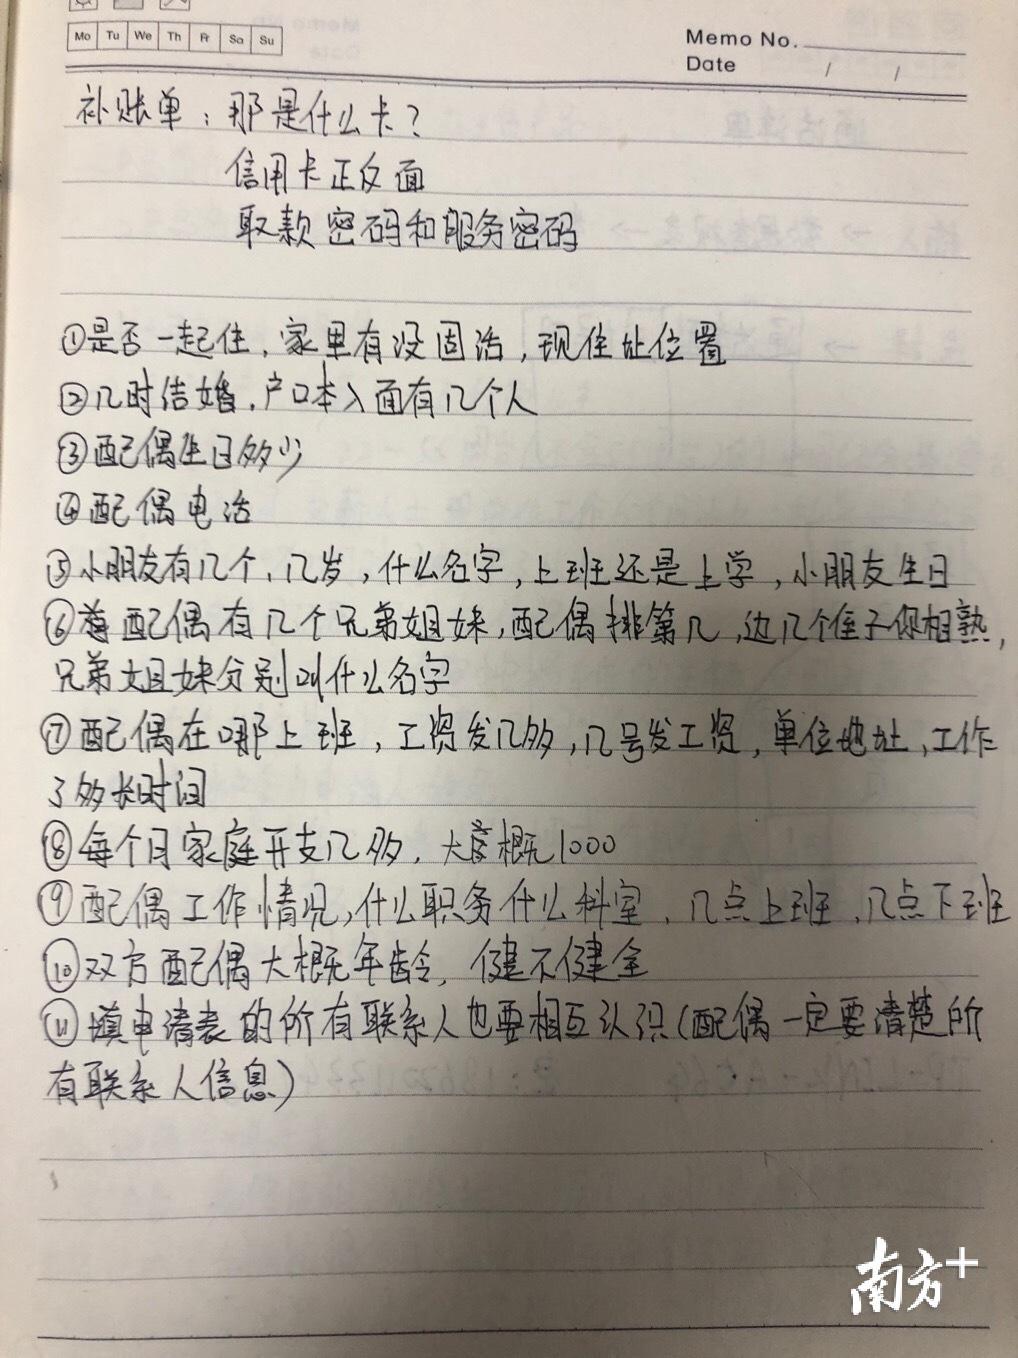 Mo Tu We Th Fr Sa Su
Memo No.
Date / /
补账单：那是什么卡？
信用卡正反面
取款密码和服务密码
①是否一起住，家里有没固话，现住址位置
②几时结婚，户口本入面有几个人
③配偶生日多少
④配偶电话
⑤小朋友有几个，几岁，什么名字，上班还是上学，小朋友生日
⑥配偶有几个兄弟姐妹，配偶排第几，边几个同你相熟，
兄弟姐妹分别叫什么名字
⑦配偶在哪上班，工资发几多，几号发工资，单位地址，工作
了多长时间
⑧每个月家庭开支几多，大概1000
⑨配偶工作情况，什么职务什么科室，几点上班，几点下班
⑩双方配偶大概年龄，健不健全
⑪填申请表的所有联系人也要相互认识（配偶一定要清楚所
有联系人信息）
南方+